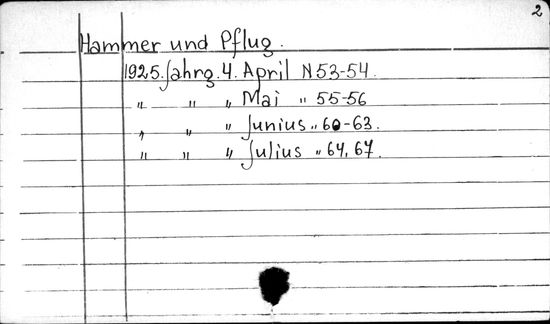 2
Hammer und Pflug.
1925. Jahrg. 4. April N 53-54.
" " " Mai " 55-56
" " " Junius " 60-63.
" " " Julius " 64, 67.